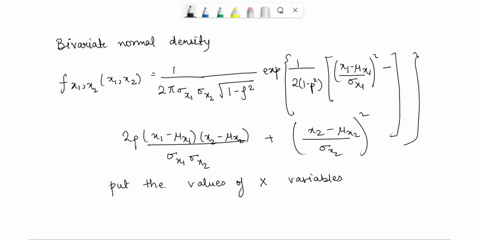 Bivariate normal density
f_{x_1, x_2}(x_1, x_2) = \frac{1}{2\pi\sigma_{x_1}\sigma_{x_2}\sqrt{1-\rho^2}} exp{ \frac{1}{2(1-\rho^2)} [ (\frac{x_1-\mu_{x_1}}{\sigma_{x_1}})^2 -
2\rho \frac{(x_1-\mu_{x_1})(x_2-\mu_{x_2})}{\sigma_{x_1}\sigma_{x_2}} + (\frac{x_2-\mu_{x_2}}{\sigma_{x_2}})^2 ] }
put the values of X variables